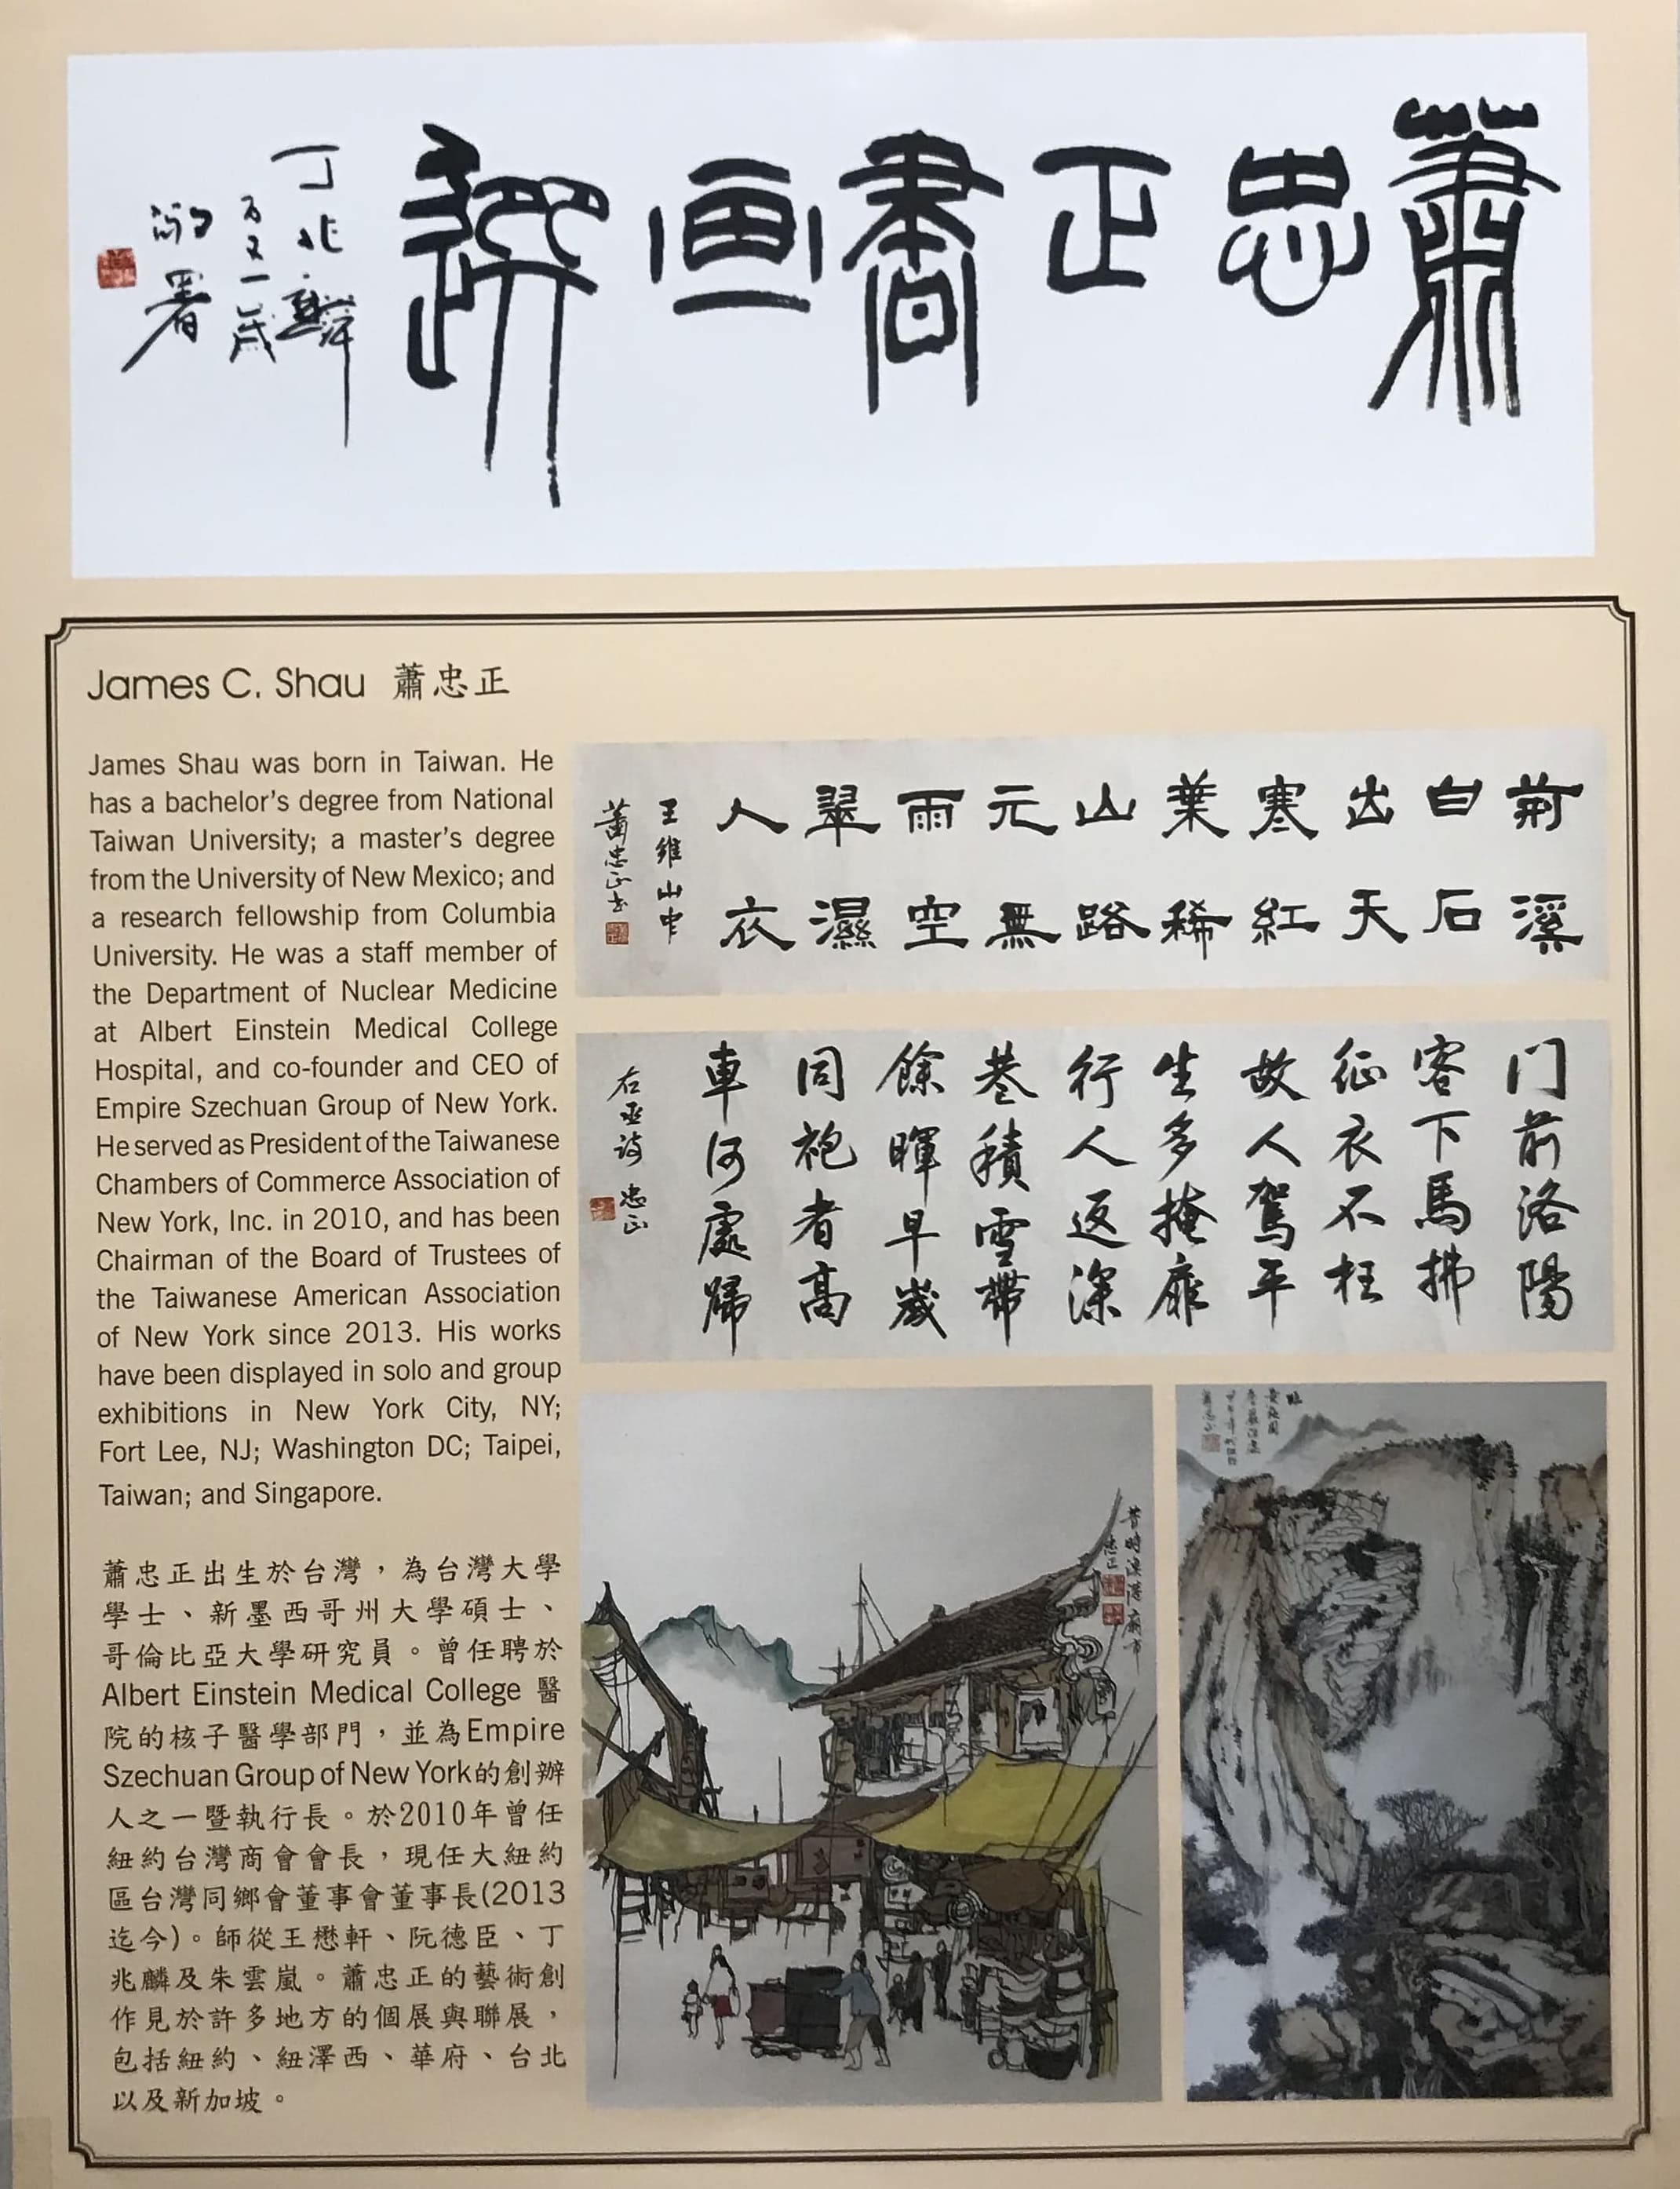 蕭忠正書画選
丁兆麟
百又一歲
敬署
James C. Shau 蕭忠正
James Shau was born in Taiwan. He
has a bachelor's degree from National
Taiwan University; a master's degree
from the University of New Mexico; and
a research fellowship from Columbia
University. He was a staff member of
the Department of Nuclear Medicine
at Albert Einstein Medical College
Hospital, and co-founder and CEO of
Empire Szechuan Group of New York.
He served as President of the Taiwanese
Chambers of Commerce Association of
New York, Inc. in 2010, and has been
Chairman of the Board of Trustees of
the Taiwanese American Association
of New York since 2013. His works
have been displayed in solo and group
exhibitions in New York City, NY;
Fort Lee, NJ; Washington DC; Taipei,
Taiwan; and Singapore.
蕭忠正出生於台灣，為台灣大學
學士、新墨西哥州大學碩士、
哥倫比亞大學研究員。曾任聘於
Albert Einstein Medical College 醫
院的核子醫學部門，並為Empire
Szechuan Group of New York的創辦
人之一暨執行長。於2010年曾任
紐約台灣商會會長，現任大紐約
區台灣同鄉會董事會董事長(2013
迄今)。師從王懋軒、阮德臣、丁
兆麟及朱雲嵐。蕭忠正的藝術創
作見於許多地方的個展與聯展，
包括紐約、紐澤西、華府、台北
以及新加坡。
荊溪
白石
出天
寒紅
葉稀
山路
元無
雨空
翠濕
人衣
王維山中
蕭忠正書
门前洛陽
客下馬拂
征衣不枉
故人駕平
生多掩扉
行人返深
巷積雪帶
餘暉早歲
同袍者高
車何處歸
右丞詩 忠正
昔時
忠正